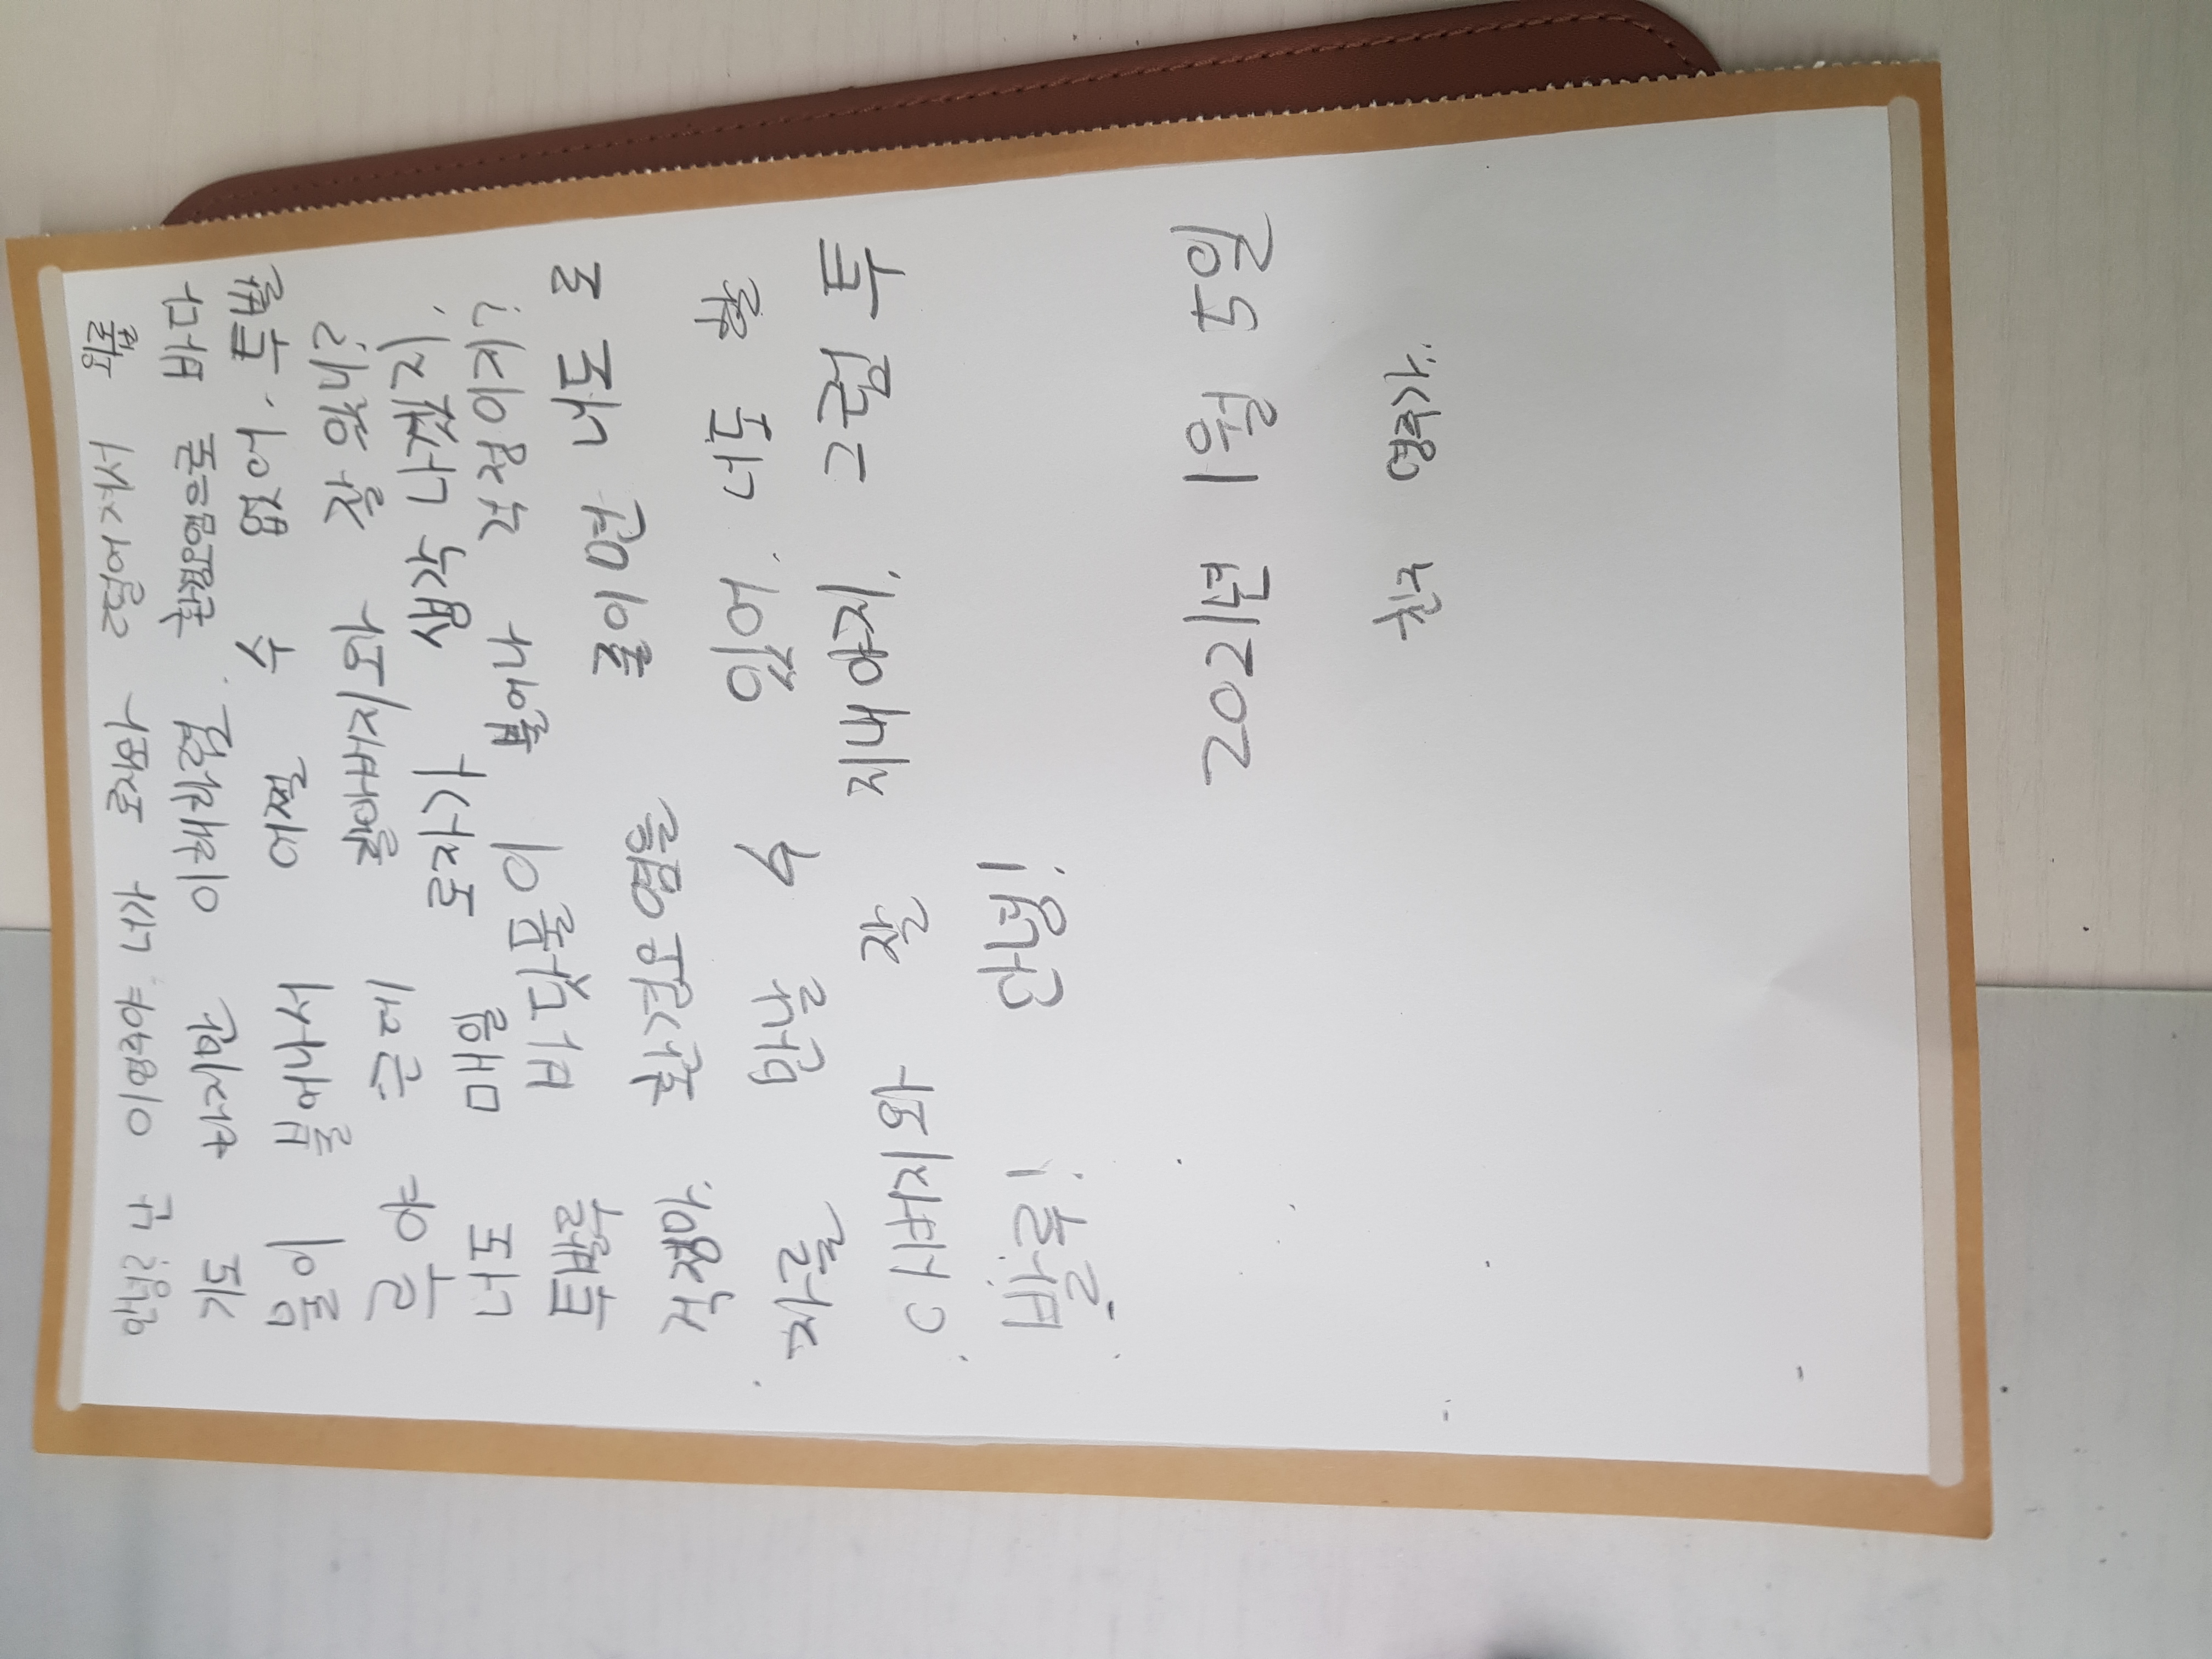 안녕? 난 이영주야. 너가 로자와 떨어져서 외롭
기도 하지만 이해하렴. 환경오염으로 바다
물이 불어나서 어쩔 수 없어. 투발
루야 근데 할아버지와 잘 있니?
너도 매일 로자가 생각 나겠지.
투발루 바닷물이 불어나 걱정이지?
걱정마. 환경오염을 줄이면 너도 로
자를 만날 수 있어. 너도 할
아버지와 잘 지내야지. 그럼 투
발루! 안녕!
2021년 1월 5일
친구 영주가..